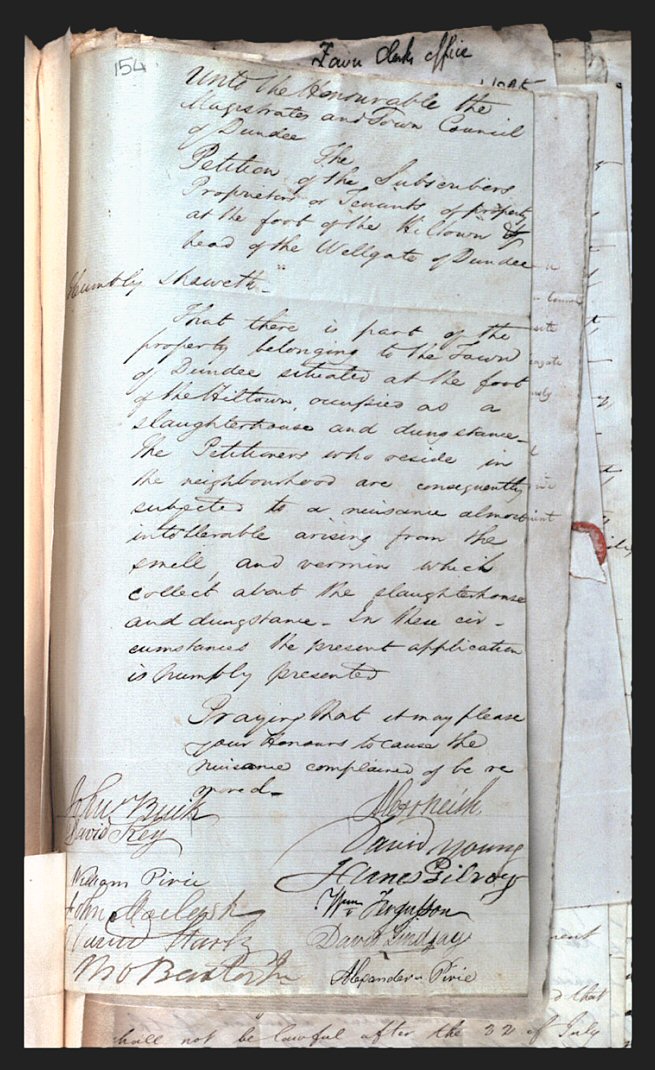 Town Clerks office
154
Unto the Honourable the
Magistrates and Town Council
of Dundee
The
Petition of the Subscribers
Proprietors or Tenants of property
at the foot of the Hiltown &
head of the Wellgate of Dundee
Humbly Sheweth
That there is part of the
property belonging to the Town
of Dundee situated at the foot
of the Hiltown, occupied as a
slaughterhouse and dungstance.
The Petitioners who reside in
the neighbourhood are consequently
subjected to a nuisance almost
intollerable arising from the
smell, and vermin which
collect about the slaughterhouse
and dungstance - In these cir-
cumstances the present application
is humbly presented
Praying that it may please
your Honours to cause the
nuisance complained of be re
moved -
John Buik
Alexr Keith
David Key
David Young
James Gilroy
William Pirie
Wm Fergusson
John
David Lindsay
David Stark
Alexander Pirie
shall not be lawful after the 22 of July